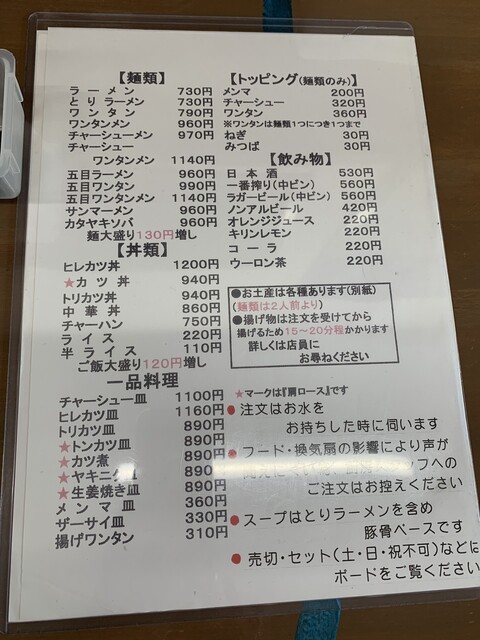 【麺類】
ラーメン 730円
とりラーメン 730円
ワンタン 790円
ワンタンメン 960円
チャーシューメン 970円
チャーシュー
ワンタンメン 1140円
五目ラーメン 960円
五目ワンタン 990円
五目ワンタンメン 1140円
サンマーメン 960円
カタヤキソバ 960円
麺大盛り130円増し
【丼類】
ヒレカツ丼 1200円
★カツ丼 940円
トリカツ丼 940円
中華丼 860円
チャーハン 750円
ライス 220円
半ライス 110円
ご飯大盛り120円増し
一品料理
チャーシュー皿 1100円
ヒレカツ皿 1160円
トリカツ皿 890円
★トンカツ皿 890円
★カツ煮 890円
★ヤキニク皿 890円
★生姜焼き皿 890円
メンマ皿 360円
ザーサイ皿 330円
揚げワンタン 310円
【トッピング(麺類のみ)】
メンマ 200円
チャーシュー 320円
ワンタン 360円
※ワンタンは麺類1つにつき1つまで
ねぎ 30円
みつば 30円
【飲み物】
日本酒 530円
一番搾り(中ビン) 560円
ラガービール(中ビン) 560円
ノンアルビール 420円
オレンジジュース 220円
キリンレモン 220円
コーラ 220円
ウーロン茶 220円
●お土産は各種あります(別紙)
(麺類は2人前より)
●揚げ物は注文を受けてから
揚げるため15〜20分程かかります
詳しくは店員に
お尋ねください
★マークは『肩ロース』です
●注文はお水を
お持ちした時に伺います
●フード・換気扇の影響により声が
スタッフへの
ご注文はお控えください
●スープはとりラーメンを含め
豚骨ベースです
●売切・セット(土・日・祝不可)などは
ボードをご覧ください